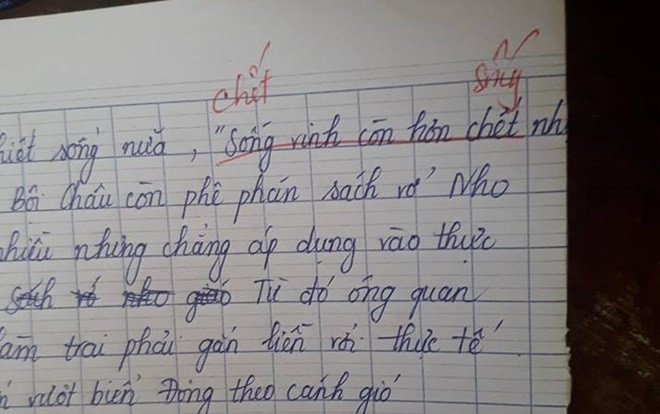 chết sống
thiết sống nữa, "Sống vinh còn hơn chết nh
Bội Châu còn phê phán sách vở Nho
nhiều nhưng chẳng áp dụng vào thực
sách vở nho giáo Từ đó ông quan
làm trai phải gắn liền với thực tế
vượt biển Đông theo cánh gió